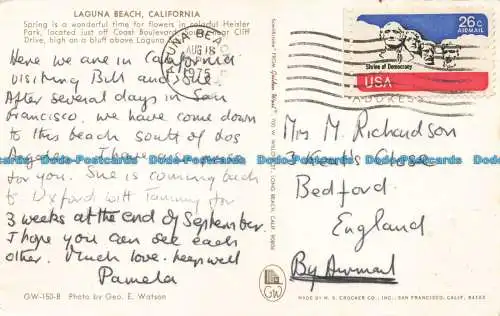 LAGUNA BEACH, CALIFORNIA
Spring is a wonderful time for flowers in colorful Heisler
Park, located just off Coast Boulevard near Cliff
Drive, high on a bluff above Laguna
Here we are in California
visiting Bill and Sue.
After several days in San
Francisco, we have come down
to this beach south of Los
Angeles. I have
for you. She is coming back
to Oxford with Tammy for
3 weeks at the end of September.
I hope you can see each
other. Much love - keep well
Pamela
GW-150-B Photo by Geo. E. Watson
LAGUNA BEA
AUG 18
PM
1975
26c
AIRMAIL
Shrine of Democracy
USA
Mrs M. Richardson
3 Close
Bedford
England
By Airmail
"FROM Golden West"
LONG BEACH, CALIF. 90806
GW
MADE BY H. S. CROCKER CO., INC., SAN FRANCISCO, CAL. 94103
Dodo-Postcards Dodo-Postcards Dodo-Postcards Dodo-Postcards Dodo-Postcards